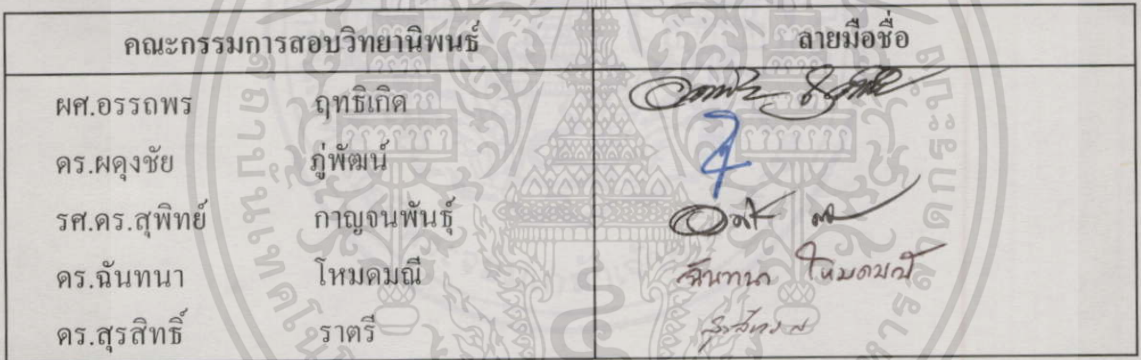 คณะกรรมการสอบวิทยานิพนธ์ ลายมือชื่อ
ผศ.อรรถพร ฤทธิเกิด
ดร.ผดุงชัย ภู่พัฒน์
รศ.ดร.สุพิทย์ กาญจนพันธุ์
ดร.ฉันทนา โหมดมณี ฉันทนา โหมดมณี
ดร.สุรสิทธิ์ ราตรี